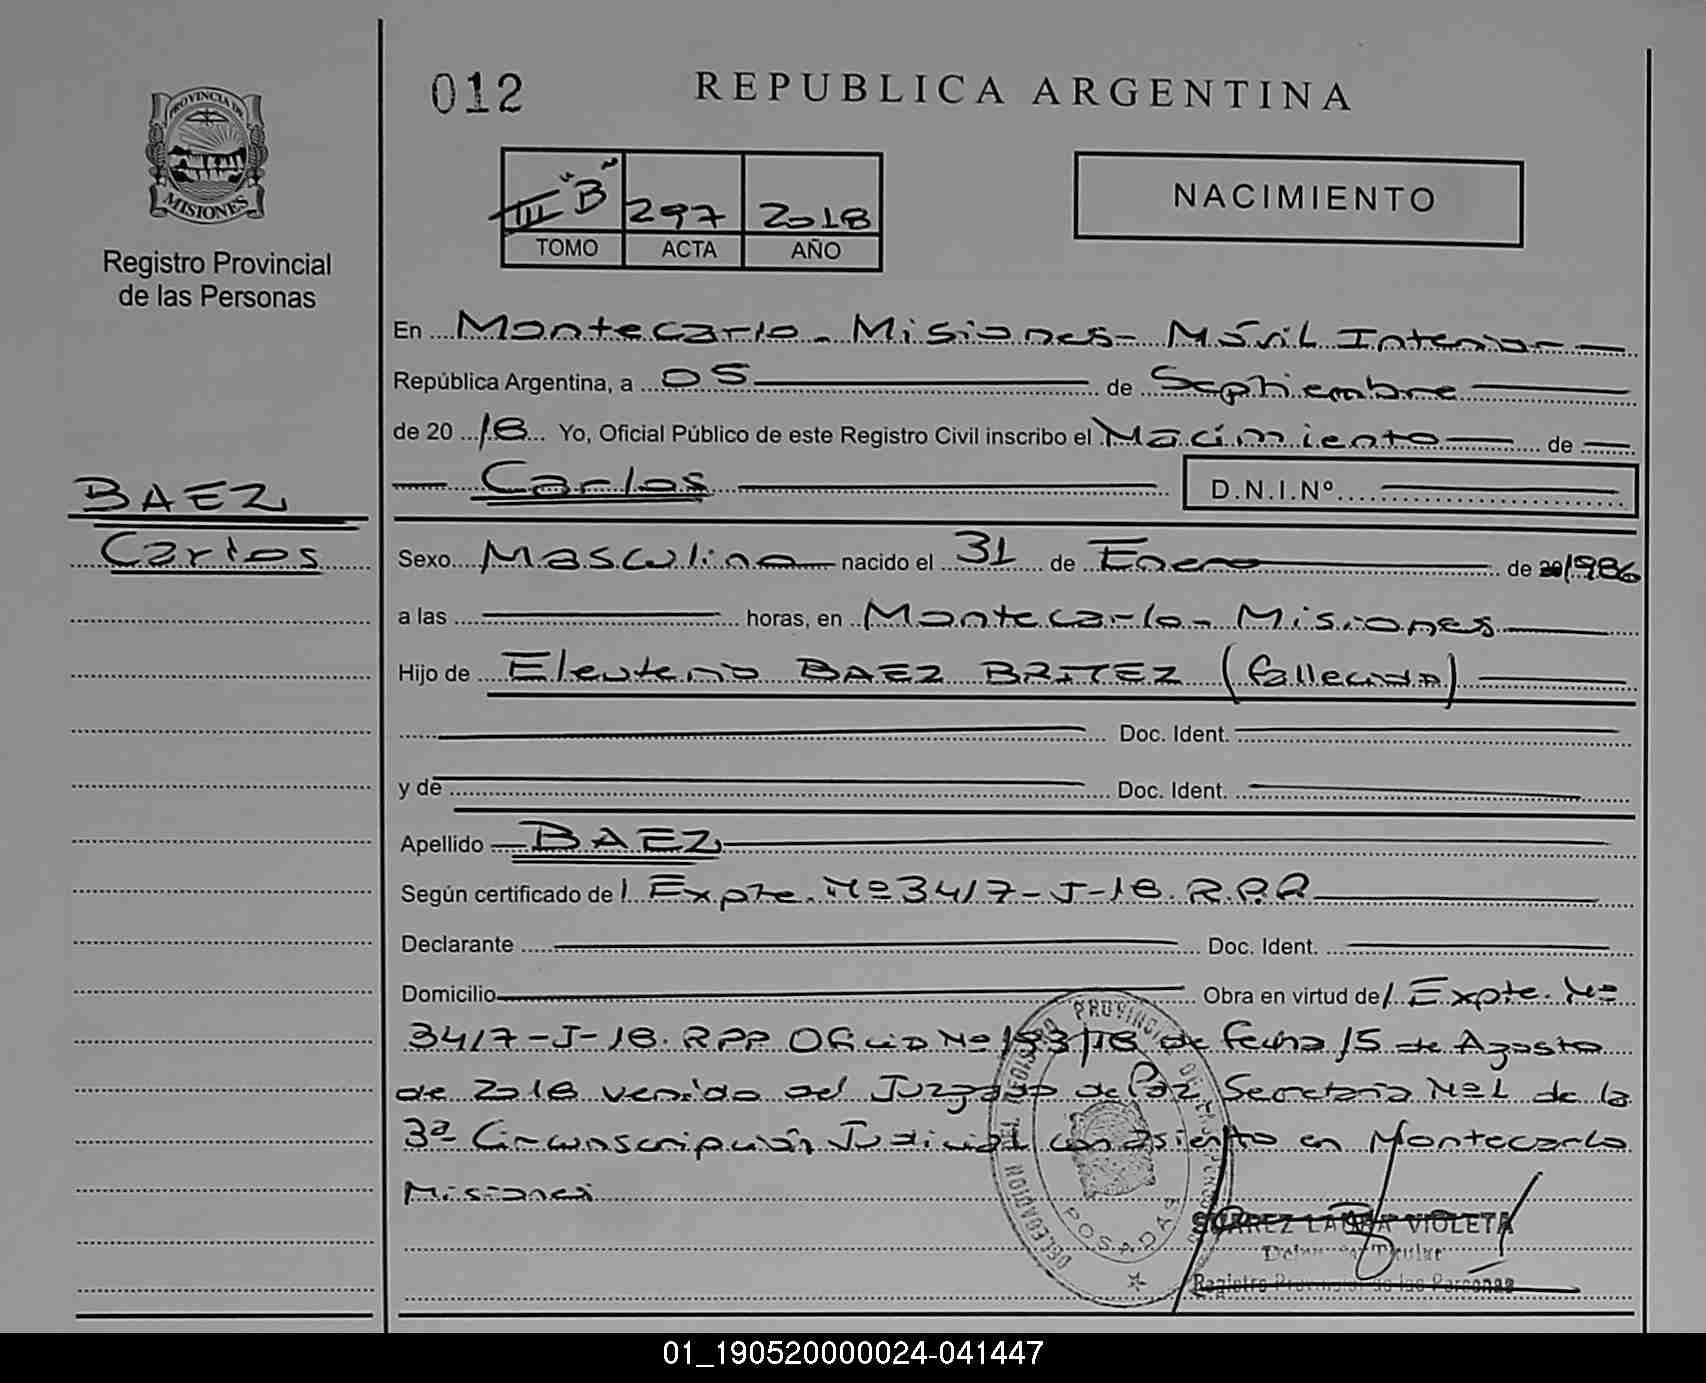 012
REPUBLICA ARGENTINA
PROVINCIA DE
MISIONES
Registro Provincial
de las Personas
III "B" 297 2018
TOMO ACTA AÑO
NACIMIENTO
En Montecarlo - Misiones - Móvil Interior
República Argentina, a 05 de Septiembre
de 2018 Yo, Oficial Público de este Registro Civil inscribo el Nacimiento de
Carlos D.N.I.Nº
BAEZ
Carlos
Sexo Masculino nacido el 31 de Enero de 20 1986
a las horas, en Montecarlo - Misiones
Hijo de Eleuterio BAEZ BRITEZ (fallecido)
Doc. Ident.
y de Doc. Ident.
Apellido BAEZ
Según certificado de Expte. Nº 3417-J-18. R.P.P.
Declarante Doc. Ident.
Domicilio Obra en virtud de Expte. Nº
3417-J-18. RPP Oficio Nº /18 de fecha 15 de Agosto
de 2018 venido del Juzgado de Paz Secretaria Nº 1 de la
3ª Circunscripción Judicial con asiento en Montecarlo
Misiones
POSADAS
SUAREZ LAURA VIOLETA
Titular
Registro Provincial de las Personas
01_190520000024-041447